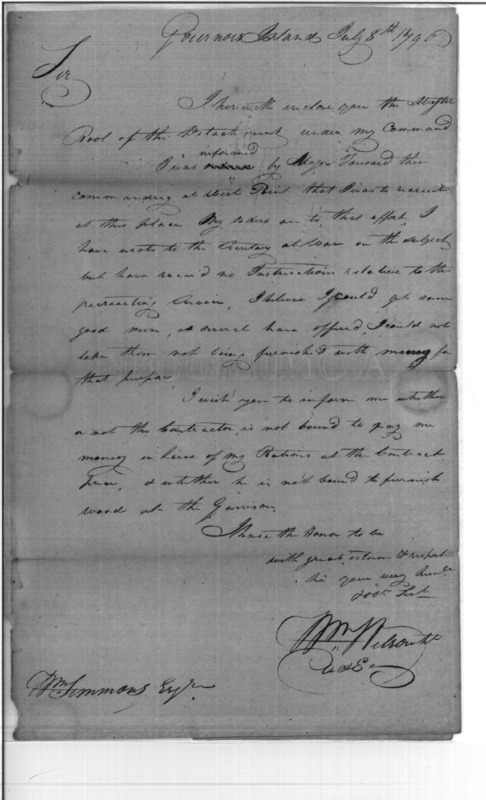 Governors Island July 8th 1796
Sir
I herewith enclose you the Muster
Rool of the Detachment under my Command
informed
I was by Major Tousard then
commanding at West Point that I was to recruit
at this place My orders are to that effect, I
have wrote to the Secretary at War on the subject
but have receiv'd no Instructions relative to the
recruiting Service, I believe I could get some
good men, as several have offered, I could not
take them not being furnish'd with money for
that purpose
I wish you to inform me whether
or not the Contractor, is not bound to pay me
money in lieue of my Rations at the Contract
price, & whether he is not bound to furnish
wood at the Garrison,
I have the honor to be
with great esteem & respect
Sir your very Humle
Obt Sert
Wm Wilson Lt
A & E
Wm Simmons Esqr